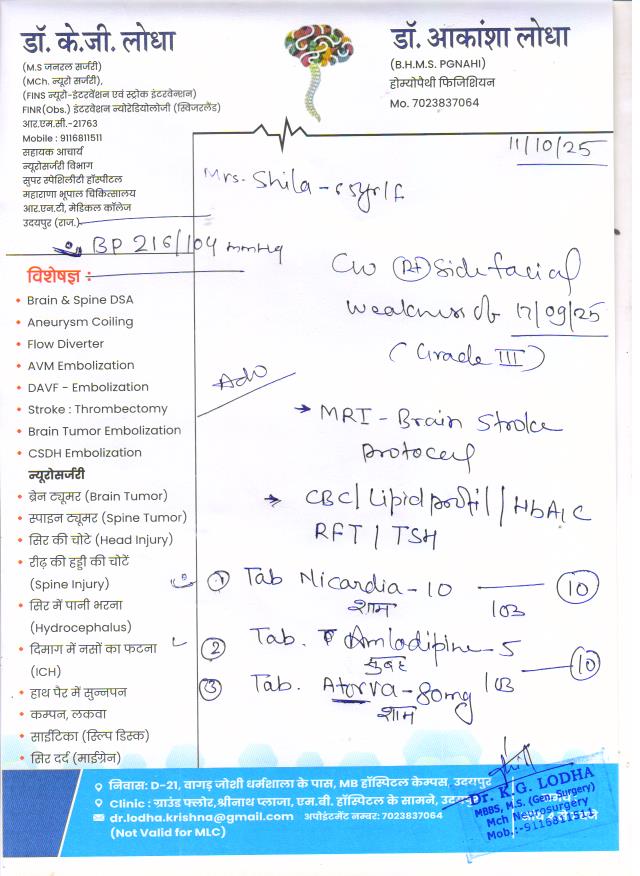 डॉ. के.जी. लोधा
(M.S जनरल सर्जरी)
(MCh. न्यूरो सर्जरी),
(FINS न्यूरो-इंटरवेंशन एवं स्ट्रोक इंटरवेन्शन)
FINR(Obs.) इंटरवेंशन न्योरेडियोलॉजी (स्विजरलैंड)
आर.एम.सी.-21763
Mobile : 9116811511
सहायक आचार्य
न्यूरोसर्जरी विभाग
सुपर स्पेशिलीटी हॉस्पीटल
महाराणा भूपाल चिकित्सालय
आर.एन.टी. मेडिकल कॉलेज
उदयपुर (राज.)
डॉ. आकांशा लोधा
(B.H.M.S. PGNAHI)
होम्योपैथी फिजिशियन
Mo. 7023837064
11/10/25
Mrs. Shila - 65yr/F
BP 216/104 mmHg
विशेषज्ञ :
• Brain & Spine DSA
• Aneurysm Coiling
• Flow Diverter
• AVM Embolization
• DAVF - Embolization
• Stroke : Thrombectomy
• Brain Tumor Embolization
• CSDH Embolization
न्यूरोसर्जरी
• ब्रेन ट्यूमर (Brain Tumor)
• स्पाइन ट्यूमर (Spine Tumor)
• सिर की चोटें (Head Injury)
• रीढ़ की हड्डी की चोटें
(Spine Injury)
• सिर में पानी भरना
(Hydrocephalus)
• दिमाग में नसों का फटना
(ICH)
• हाथ पैर में सुन्नपन
• कम्पन, लकवा
• साईटिका (स्लिप डिस्क)
• सिर दर्द (माईग्रेन)
C/O (Rt) side facial
weakness
17/09/25
(Grade III)
Adv
→ MRI - Brain Stroke
protocol
→ CBC / Lipid profil / HbA1C
RFT / TSH
① Tab Nicardia - 10 — ⑩
शाम
② Tab. Amlodipine - 5
सुबह
⑩
③ Tab. Atorva - 80mg
शाम
निवास: D-21, वागड़ जोशी धर्मशाला के पास, MB हॉस्पिटल केम्पस, उदयपुर
Clinic : ग्राउंड फ्लोर, श्रीनाथ प्लाजा, एम.बी. हॉस्पिटल के सामने, उदयपुर
dr.lodha.krishna@gmail.com अपोइंटमेंट नम्बर: 7023837064
(Not Valid for MLC)
Dr. K.G. LODHA
MBBS, M.S. (Gen. Surgery)
Mch Neurosurgery
Mob.:-9116811511